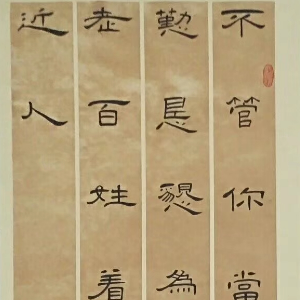 不管你當
勤恳懇為
老百姓着
近人